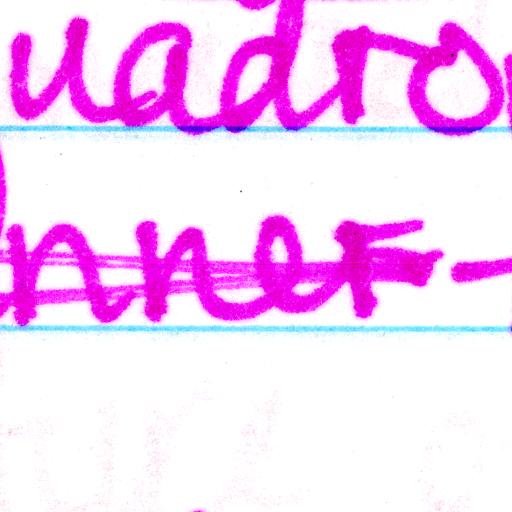 uadro
nner-